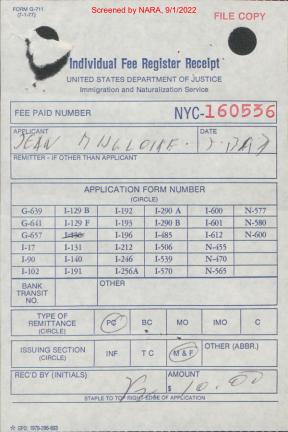 FORM G-711
(7-1-77)
Screened by NARA, 9/1/2022
FILE COPY
Individual Fee Register Receipt
UNITED STATES DEPARTMENT OF JUSTICE
Immigration and Naturalization Service
FEE PAID NUMBER NYC-160536
APPLICANT DATE
JEAN
REMITTER - IF OTHER THAN APPLICANT
APPLICATION FORM NUMBER
(CIRCLE)
G-639 I-129 B I-192 I-290 A I-600 N-577
G-641 I-129 F I-193 I-290 B I-601 N-580
G-657 I-130 I-196 I-485 I-612 N-600
I-17 I-131 I-212 I-506 N-455
I-90 I-140 I-246 I-539 N-470
I-102 I-191 I-256A I-570 N-565
BANK TRANSIT NO. OTHER
TYPE OF REMITTANCE (CIRCLE) PC BC MO IMO C
ISSUING SECTION (CIRCLE) INF T C M & F OTHER (ABBR.)
REC'D BY (INITIALS) AMOUNT
$ 10.00
STAPLE TO TOP RIGHT-EDGE OF APPLICATION